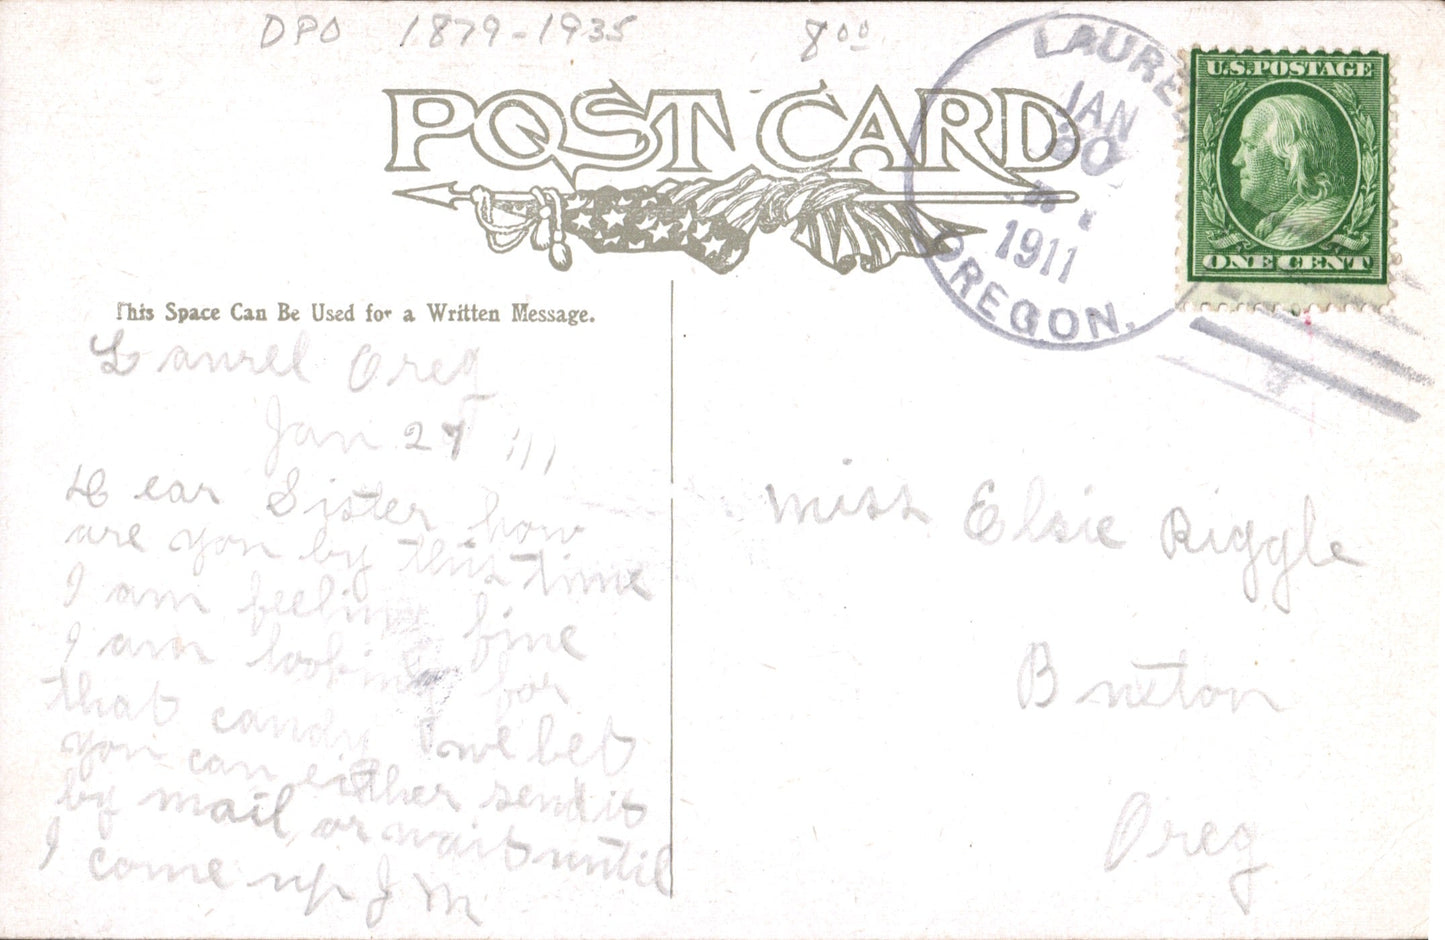 DPO 1879-1935 800
POST CARD
LAUREL
JAN
30
1911
OREGON.
U.S. POSTAGE
ONE CENT
This Space Can Be Used for a Written Message.
Laurel Oreg
Jan 29 '11
Dear Sister how
are you by this time
I am feeling fine
I am looking for
that candy we bet
you can either send it
by mail or wait until
I come up J M
Miss Elsie Riggle
Buxton
Oreg